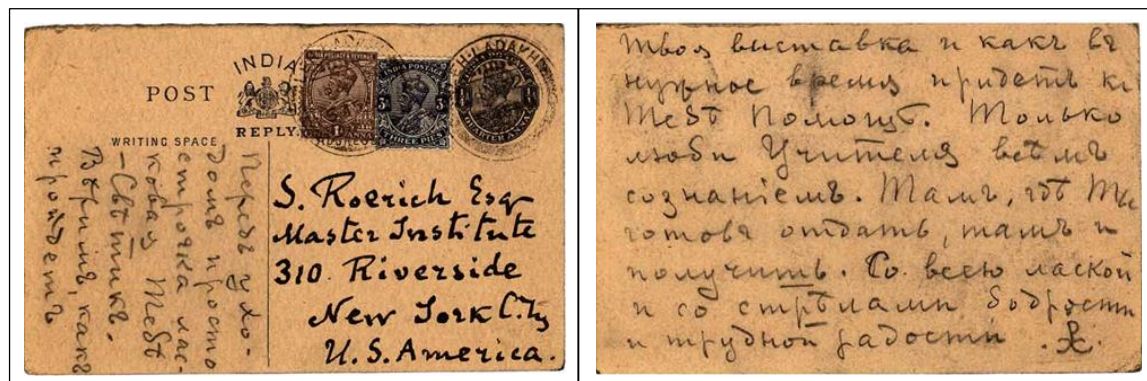 INDIA
POST
REPLY
WRITING SPACE
INDIA POSTAGE
3
THREE PIES
H·LADAKH
QUARTER ANNA
Передъ ухо-
домъ просто
строчка лас-
ковая Тебѣ
- Свѣтикъ.
Вѣримъ, какъ
пройдетъ
S. Roerich Esq
Master Institute
310. Riverside
New York C.ty
U.S. America.
Твоя выставка и какъ въ
нужное время придетъ къ
Тебѣ Помощь. Только
люби Учителя всѣмъ
сознаніемъ. Тамъ, гдѣ Ты
готовъ отдать, тамъ и
получишь. Со всею лаской
и со стрѣлами бодрости
и трудной радости.